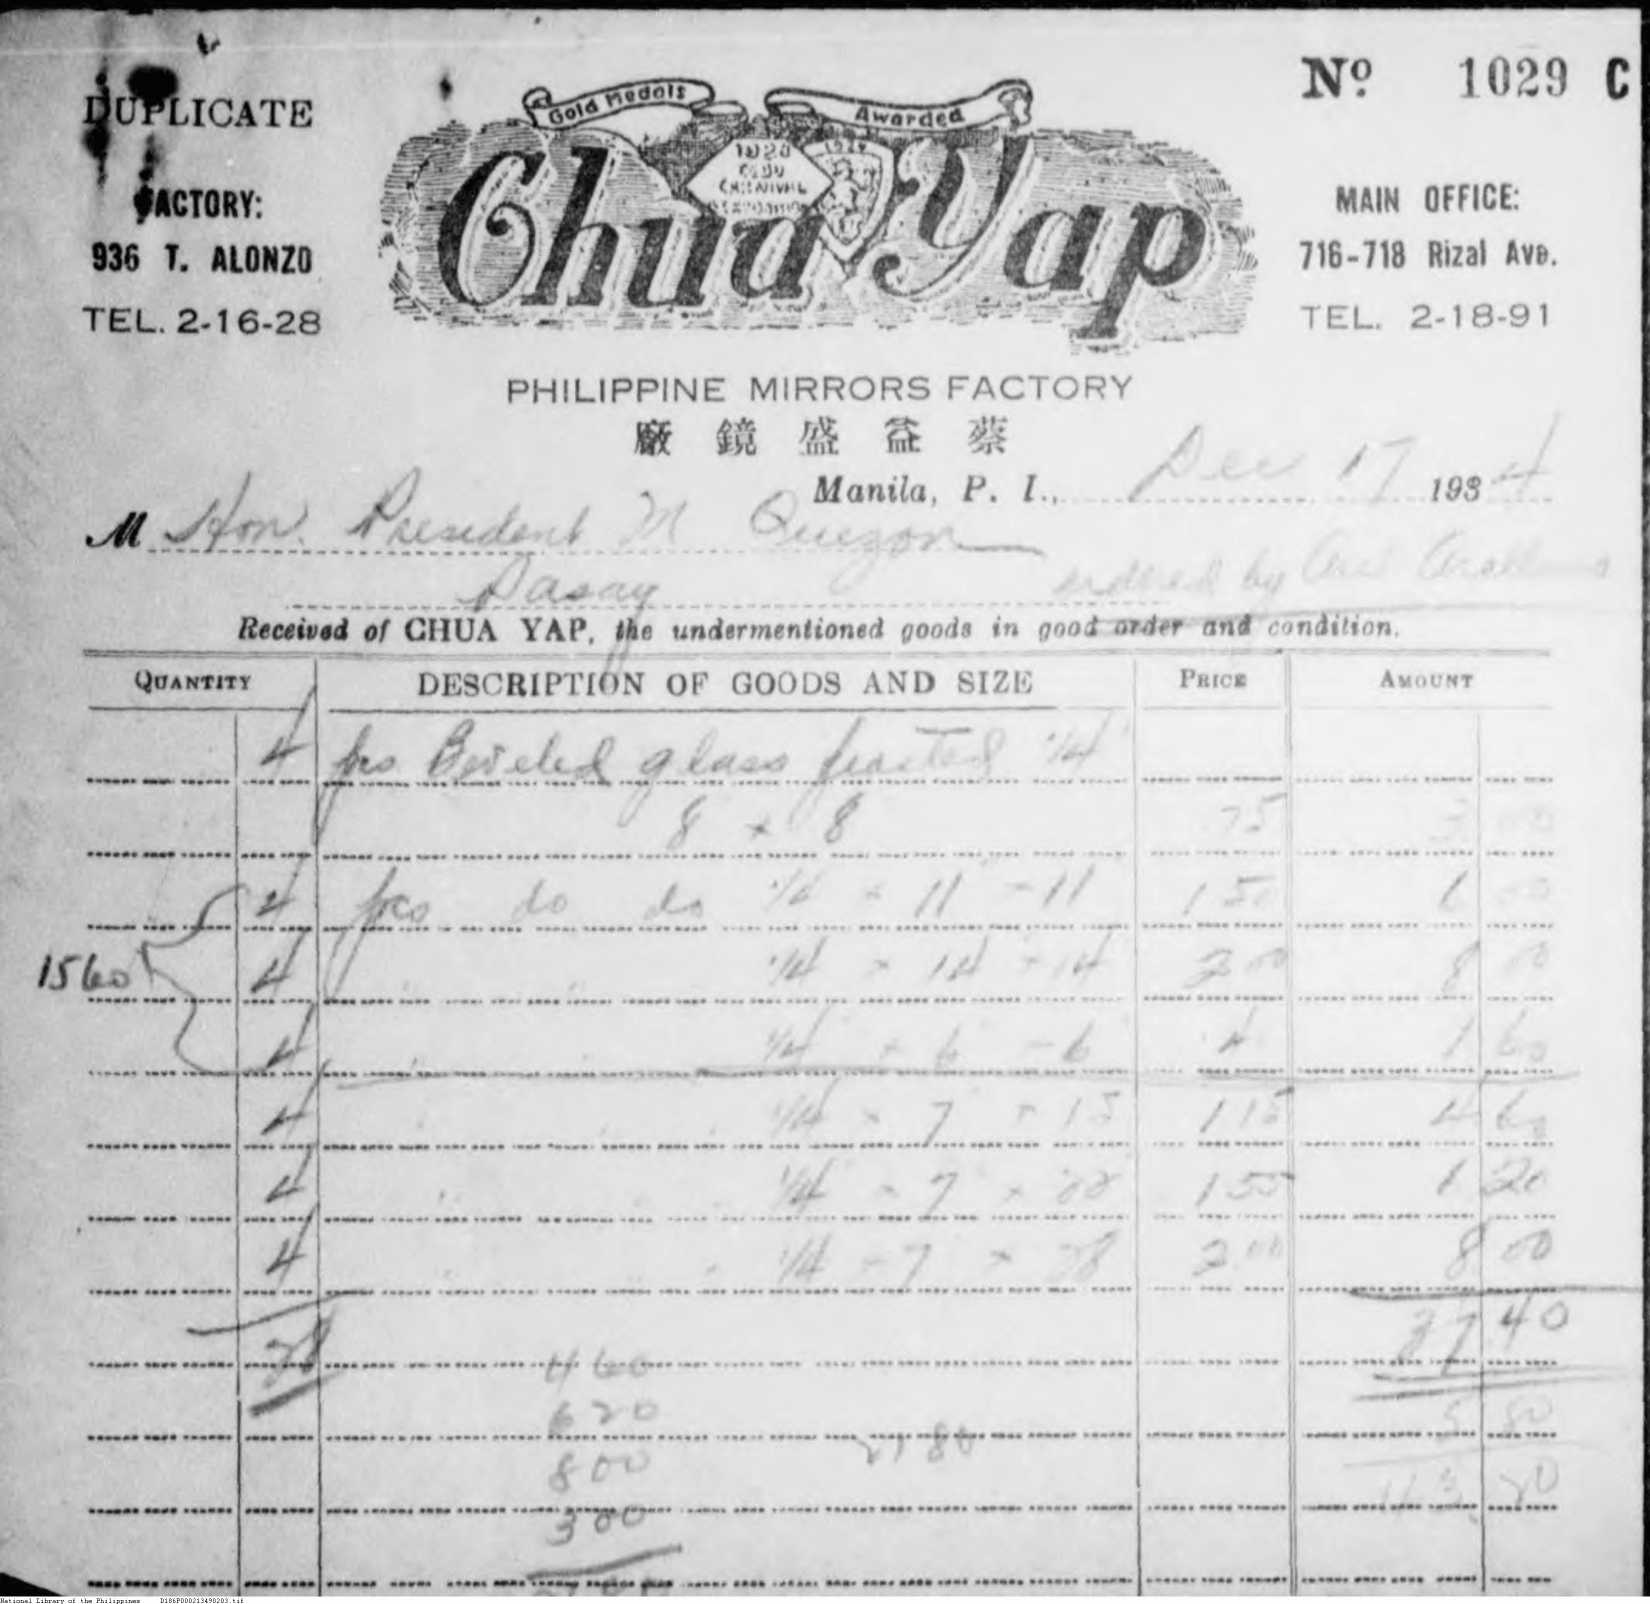 DUPLICATE
Nº 1029 C
Gold Medals Awarded
FACTORY:
936 T. ALONZO
TEL. 2-16-28
Chua Yap
MAIN OFFICE:
716-718 Rizal Ave.
TEL. 2-18-91
PHILIPPINE MIRRORS FACTORY
廠 鏡 盛 益 蔡
Manila, P. I., Dec 17 1934
M Hon. President M Quezon
Pasay ordered by
Received of CHUA YAP, the undermentioned goods in good order and condition.
QUANTITY DESCRIPTION OF GOODS AND SIZE PRICE AMOUNT
4 pcs Beveled glass frosted 1/4
8 x 8 75 3 00
4 pcs do do 1/4 - 11 - 11 1 50 6 00
1560 4 1/4 - 14 - 14 2 00 8 00
4 1/4 - 6 - 6 4 1 60
4 1/4 - 7 - 15 1 15 4 60
4 1/4 - 7 x 22 1 55 20
4 1/4 - 7 x 28 2 00 8 00
28 37 40
4 60
6 20 5 80
21 80
8 00
43 20
3 00
National Library of the Philippines D186P000213490203.tif